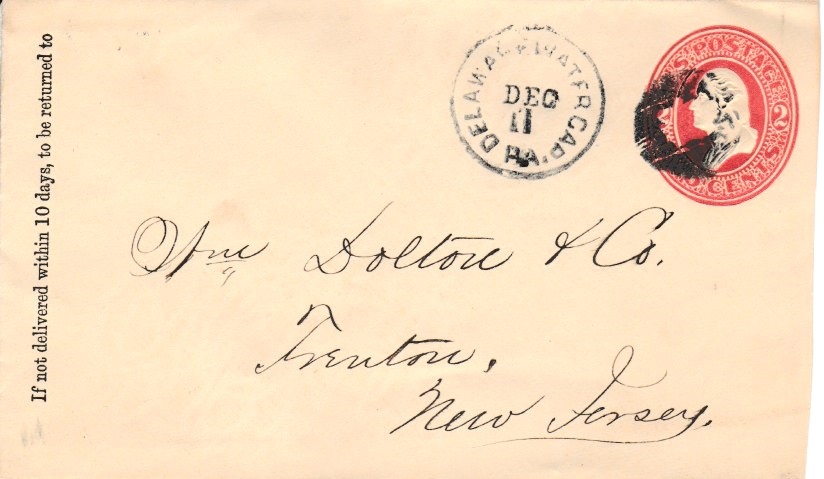 If not delivered within 10 days, to be returned to
DELAWARE WATER GAP
DEC
11
PA.
U.S. POSTAGE
2
TWO CENTS
Wm Dolton & Co.
Trenton,
New Jersey.